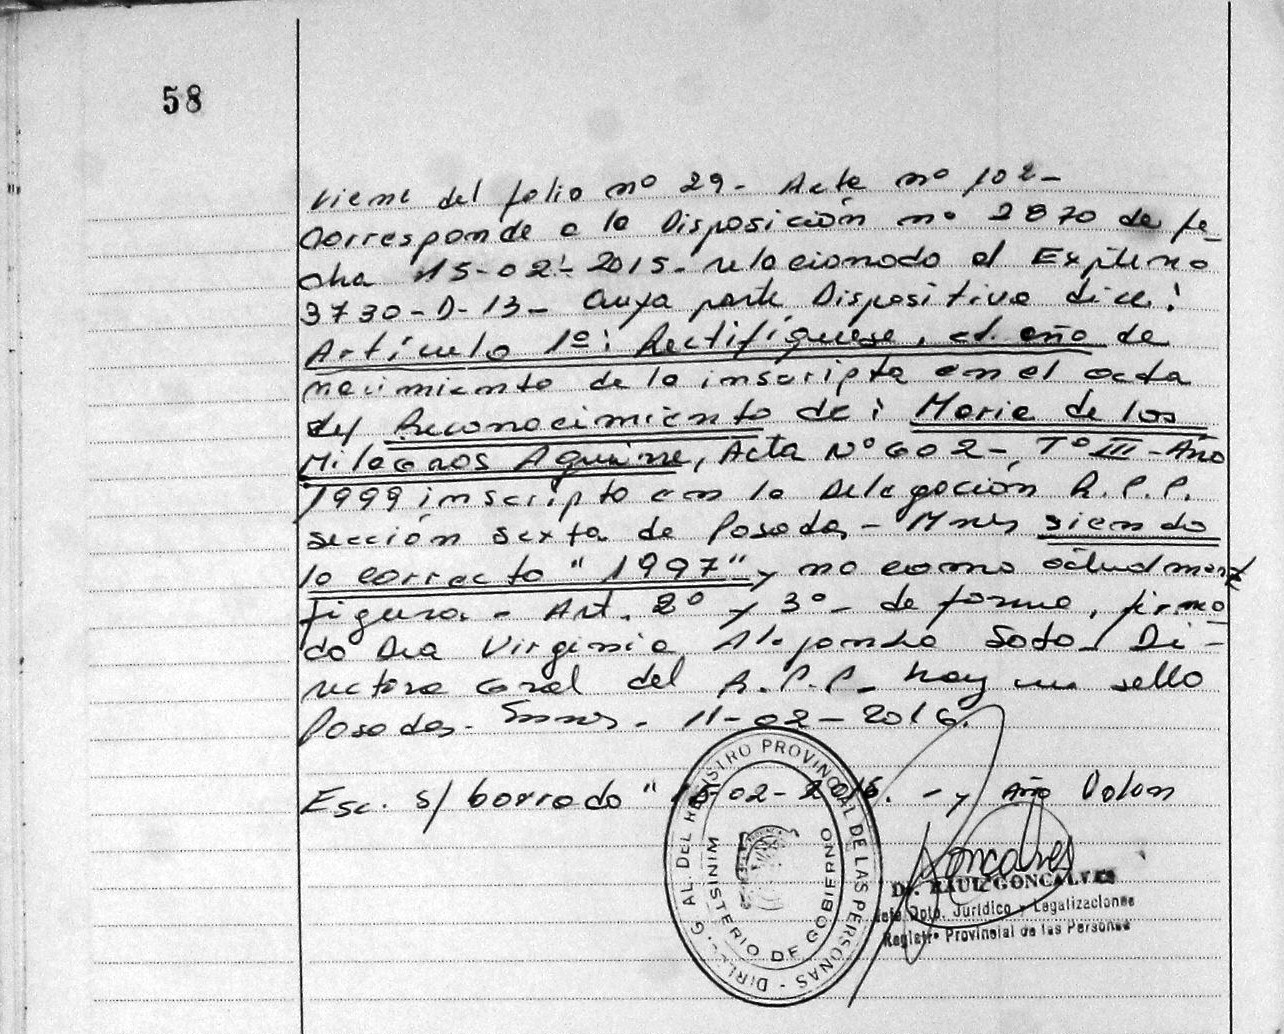 58
viene del folio nº 29- Acta nº 102-
Corresponde a la Disposición nº 2870 de fe-
cha 15-02-2015- relacionado al Expte nº
3730-D-13- Cuya parte Dispositiva dice:
Artículo 1º: Rectifíquese, el año de
nacimiento de la inscripta en el acta
del Reconocimiento de: Maria de los
Milagros Aguirre, Acta Nº 602-, Tº III-Año
1999 inscripta en la Delegación R.P.P.
sección sexta de Posadas- Mnes siendo
lo correcto "1997" y no como actualment
figura.- Art. 2º y 3º- de forma, firma
do Dra Virginia Alejandra Soto- Di-
rectora Gral del R.P.P- hay un sello
Posadas- 11-02-2016.
Esc. s/ borrado "15-02-2015.- y Año Valen
DIREC. G AL. DEL REGISTRO PROVINCIAL DE LAS PERSONAS -
MINISTERIO DE GOBIERNO
Dr. RAUL GONCALVES
Jefe Dpto. Jurídico y Legalizaciones
Registro Provincial de las Personas